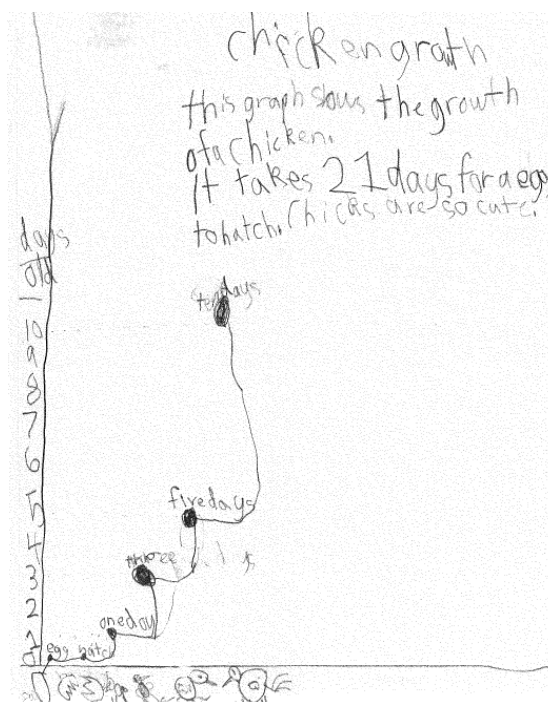 chicken grath
this graph shows the growth
of a chicken.
It takes 21 days for a egg
to hatch. Chicks are so cute.
days
old
ten days
10
9
8
7
6
five days
5
4
three
3
2
one day
1
egg hatch
0